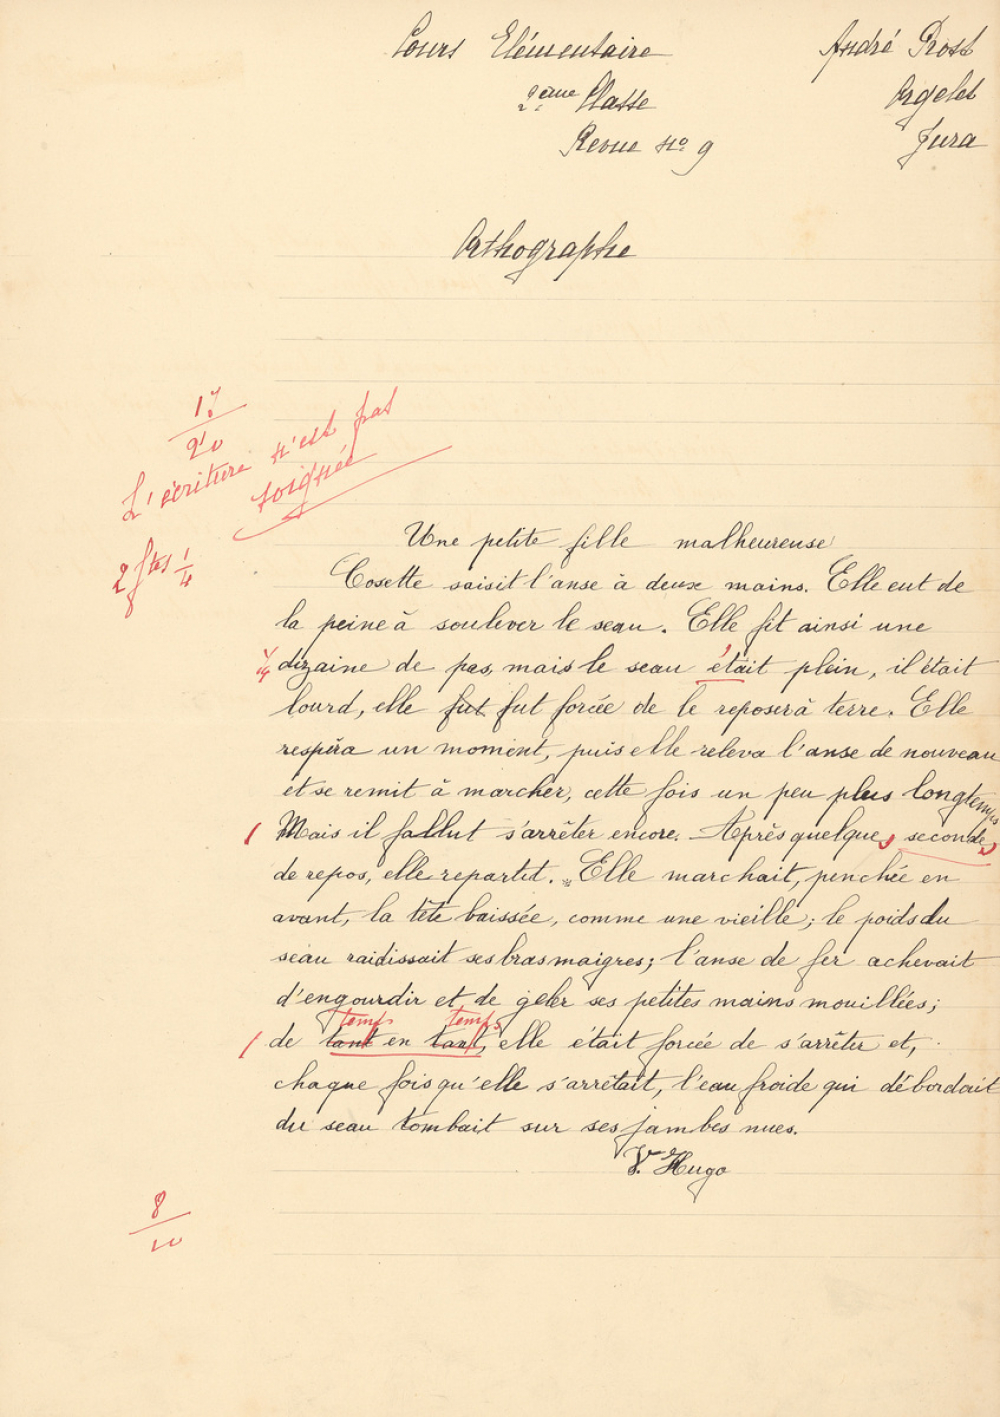 Cours Elémentaire
André Prost
2ème Classe
Orgelet
Revue No 9
Jura
Orthographe
17
20
L'écriture n'est pas
soignée
2 ftes 1/4
Une petite fille malheureuse
Cosette saisit l'anse à deux mains. Elle eut de
la peine à soulever le seau. Elle fit ainsi une
1/4 dizaine de pas, mais le seau était plein, il était
lourd, elle fut fut forcée de le reposer à terre. Elle
respira un moment, puis elle releva l'anse de nouveau
et se remit à marcher, cette fois un peu plus longtemps
1 Mais il fallut s'arrêter encore. Après quelques secondes
de repos, elle repartit. Elle marchait, penchée en
avant, la tête baissée, comme une vieille; le poids du
seau raidissait ses bras maigres; l'anse de fer achevait
d'engourdir et de geler ses petites mains mouillées;
temps temps
1 de tant en tant, elle était forcée de s'arrêter et,
chaque fois qu'elle s'arrêtait, l'eau froide qui débordait
du seau tombait sur ses jambes nues.
V. Hugo
8
10